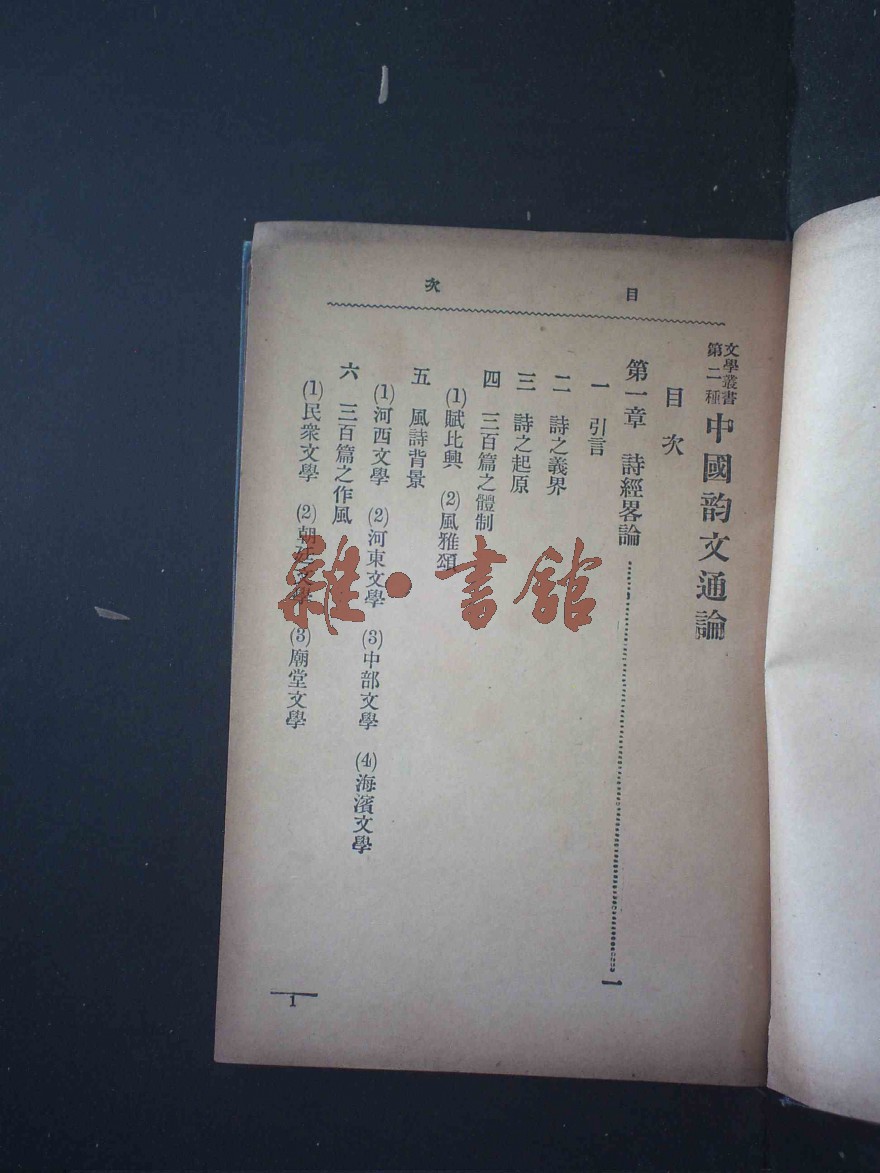 目次
文學叢書
第二種
中國韵文通論
目次
第一章 詩經畧論 一
一 引言
二 詩之義界
三 詩之起原
四 三百篇之體制
(1)賦比興 (2)風雅頌
五 風詩背景
(1)河西文學 (2)河東文學 (3)中部文學 (4)海濱文學
六 三百篇之作風
(1)民衆文學 (2)朝廷文學 (3)廟堂文學
1
雜·書館